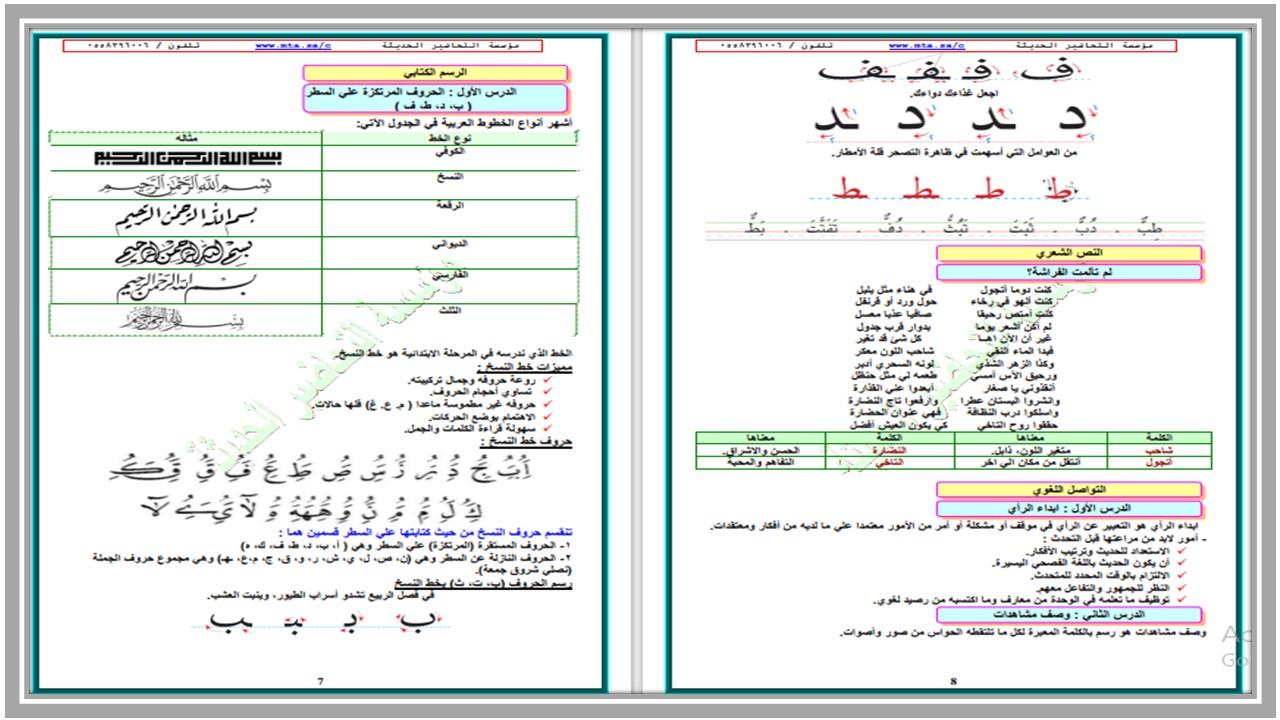 مؤسسة التحاضير الحديثة www.mta.sa/c تلفون / ٠٥٥٨٣٩٦٠٠٦
الرسم الكتابي
الدرس الأول : الحروف المرتكزة علي السطر
( ب، د، ط، ف )
أشهر أنواع الخطوط العربية في الجدول الآتي:
نوع الخط مثاله
الكوفي بسم الله الرحمن الرحيم
النسخ بِسْمِ اللَّهِ الرَّحْمَنِ الرَّحِيمِ
الرقعة بسم الله الرحمن الرحيم
الديواني بسم الله الرحمن الرحيم
الفارسي بسم الله الرحمن الرحيم
الثلث بسم الله الرحمن الرحيم
الخط الذي ندرسه في المرحلة الابتدائية هو خط النسخ.
مميزات خط النسخ :
روعة حروفه وجمال تركيبته.
تساوي أحجام الحروف.
حروفه غير مطموسة ماعدا ( م. ع. غ) فلها حالات.
الاهتمام بوضع الحركات.
سهولة قراءة الكلمات والجمل.
حروف خط النسخ :
تنقسم حروف النسخ من حيث كتابتها علي السطر قسمين هما :
١- الحروف المستقرة (المرتكزة) علي السطر وهي ( أ، ب، د، ط، ف، ك، ه)
٢- الحروف النازلة عن السطر وهي (ن، ص، ل، ي، ش، ر، و، ق، ج، م،ع، هـ) وهي مجموع حروف الجملة
(نصلي شروق جمعة).
رسم الحروف (ب، ت، ث) بخط النسخ
في فصل الربيع تشدو أسراب الطيور، وينبت العشب.
ب بـ ـبـ ـب
7
مؤسسة التحاضير الحديثة www.mta.sa/c تلفون / ٠٥٥٨٣٩٦٠٠٦
ف فـ ـفـ ـف
اجعل غذاءك دواءك.
د ـد د ـد
من العوامل التي أسهمت في ظاهرة التصحر قلة الأمطار.
ط ط ط ط
طِبٌّ . دُبٌّ . ثَبَتَ . تَبُثُّ . دُفٌّ . تَفَتَّتَ . بَطٌّ
النص الشعري
لم تألمت الفراشة؟
كنت دوما أتجول في هناء مثل بلبل
كنت ألهو في رخاء حول ورد أو قرنفل
كنت أمتص رحيقا صافيا عذبا معسل
لم أكن أشعر يوما بدوار قرب جدول
غير أن الآن أهـا كل شئ قد تغير
فبدا الماء النقي شاحب اللون معكر
وكذا الزهر الشذي لونه السحري أدبر
ورحيق الأمس أمسي طعمه لي مثل حنظل
أنقذوني يا صغار أبعدوا علي القذارة
وانشروا البستان عطرا وارفعوا تاج النضارة
واسلكوا درب النظافة فهي عنوان الحضارة
حققوا روح التآخي كي يكون العيش أفضل
الكلمة معناها الكلمة معناها
شاحب متغير اللون، ذابل. النضارة الحسن والاشراق.
أتجول أنتقل من مكان الي اخر التآخي التفاهم والمحبة
التواصل اللغوي
الدرس الأول : ابداء الرأي
ابداء الرأي هو التعبير عن الرأي في موقف أو مشكلة أو أمر من الأمور معتمدا علي ما لديه من أفكار ومعتقدات.
- أمور لابد من مراعتها قبل التحدث :
الاستعداد للحديث وترتيب الأفكار.
أن يكون الحديث باللغة الفصحي اليسيرة.
الالتزام بالوقت المحدد للمتحدث.
النظر للجمهور والتفاعل معهم.
توظيف ما تعلمه في الوحدة من معارف وما اكتسبه من رصيد لغوي.
الدرس الثاني : وصف مشاهدات
وصف مشاهدات هو رسم بالكلمة المعبرة لكل ما تلتقطه الحواس من صور وأصوات.
8